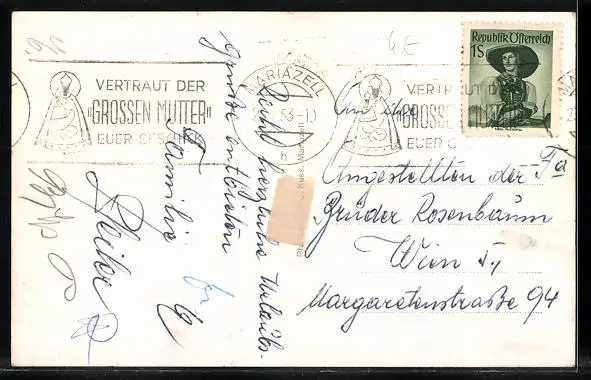 VERTRAUT DER
"GROSSEN MUTTER"
EUER GESCHICK
MARIAZELL
53-10
h
VERTRAUT DER
"GROSSE
EUER G
Republik Österreich
1S
Recht herzliche Urlaubs-
Grüße entbieten
Familie
An die
Angestellten der Fa
Brüder Rosenbaum
Wien V.,
Margaretenstraße 94